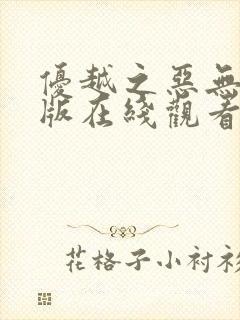 優越之惡無
版在綫觀看
花格子小衬衫